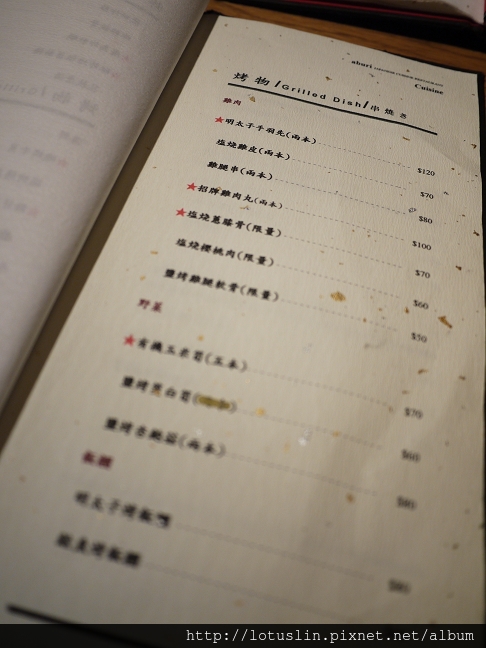 aburi
Cuisine
烤物/Grilled Dish/串燒き
雞肉
★明太子手羽先(兩本) $120
塩燒雞皮(兩本) $70
雞腿串(兩本) $80
★招牌雞肉丸(兩本) $100
★塩燒蔥膝骨(限量) $70
塩燒櫻桃肉(限量) $60
鹽烤雞腿軟骨(限量) $50
野菜
★有機玉米筍(三本) $70
鹽烤茭白筍 $60
鹽烤杏鮑菇(兩本) $80
飯糰
明太子烤飯糰 $80
烤飯糰
http://lotuslin.pixnet.net/album